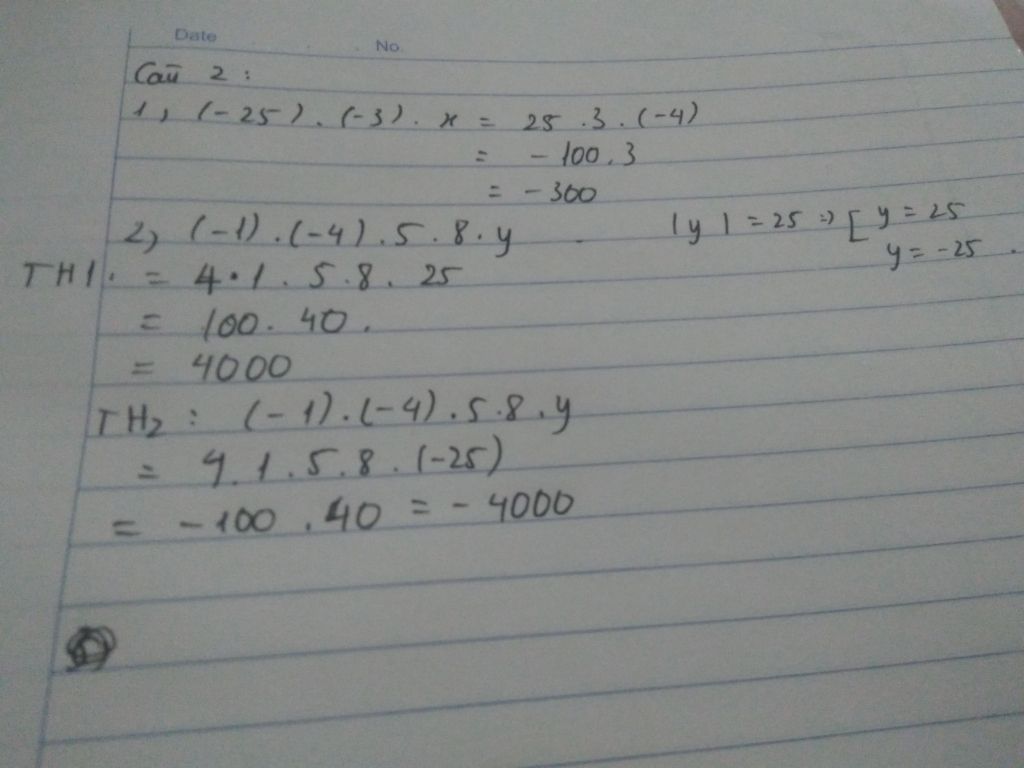 Date No.
Câu 2 :
1, (-25) . (-3) . x = 25 . 3 . (-4)
= -100 . 3
= -300
2, (-1) . (-4) . 5 . 8 . y |y| = 25 => [ y = 25
y = -25 .
TH1. = 4 . 1 . 5 . 8 . 25
= 100 . 40 .
= 4000
TH2 : (-1) . (-4) . 5 . 8 . y
= 4 . 1 . 5 . 8 . (-25)
= -100 . 40 = -4000